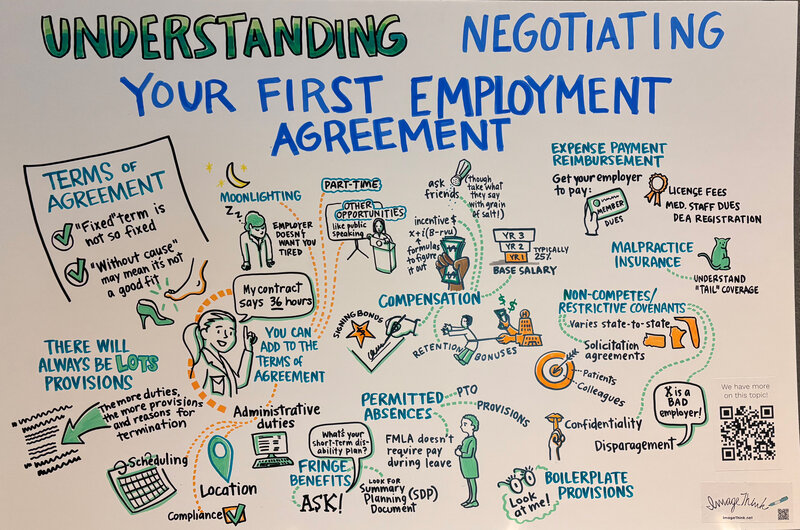 UNDERSTANDING NEGOTIATING
YOUR FIRST EMPLOYMENT
AGREEMENT
TERMS OF
AGREEMENT
"Fixed" term is
not so fixed
"Without cause"
may mean its not
a good fit
MOONLIGHTING
ZZ
EMPLOYER
DOESN'T
WANT YOU
TIRED
PART-TIME
OTHER
OPPORTUNITIES
like public
speaking
My contract
says 36 hours
YOU CAN
ADD TO THE
TERMS OF
AGREEMENT
THERE WILL
ALWAYS BE LOTS
PROVISIONS
The more duties,
the more provisions
and reasons for
termination
Scheduling
Compliance
Location
Administrative
duties
ask
friends
(though
take what
they say
with grain
of salt!)
incentive $
x+i(B-rvu)
formulas
to figure
it out
YR 3
YR 2
YR 1
TYPICALLY
25%
BASE SALARY
COMPENSATION
SIGNING BONUS
RETENTION BONUSES
EXPENSE PAYMENT
REIMBURSEMENT
Get your employer
to pay:
MEMBER
DUES
LICENSE FEES
MED. STAFF DUES
DEA REGISTRATION
MALPRACTICE
INSURANCE
UNDERSTAND
"TAIL" COVERAGE
NON-COMPETES/
RESTRICTIVE COVENANTS
Varies state-to-state
Solicitation
agreements
Patients
Colleagues
Confidentiality
Disparagement
X is a
BAD
employer!
PERMITTED
ABSENCES
PTO
PROVISIONS
FMLA doesn't
require pay
during leave
What's your
short-term dis-
ability plan?
FRINGE
BENEFITS
ASK!
LOOK FOR
Summary
Planning (SDP)
Document
Look
at me!
BOILERPLATE
PROVISIONS
We have more
on this topic!
ImageThink
imagethink.net